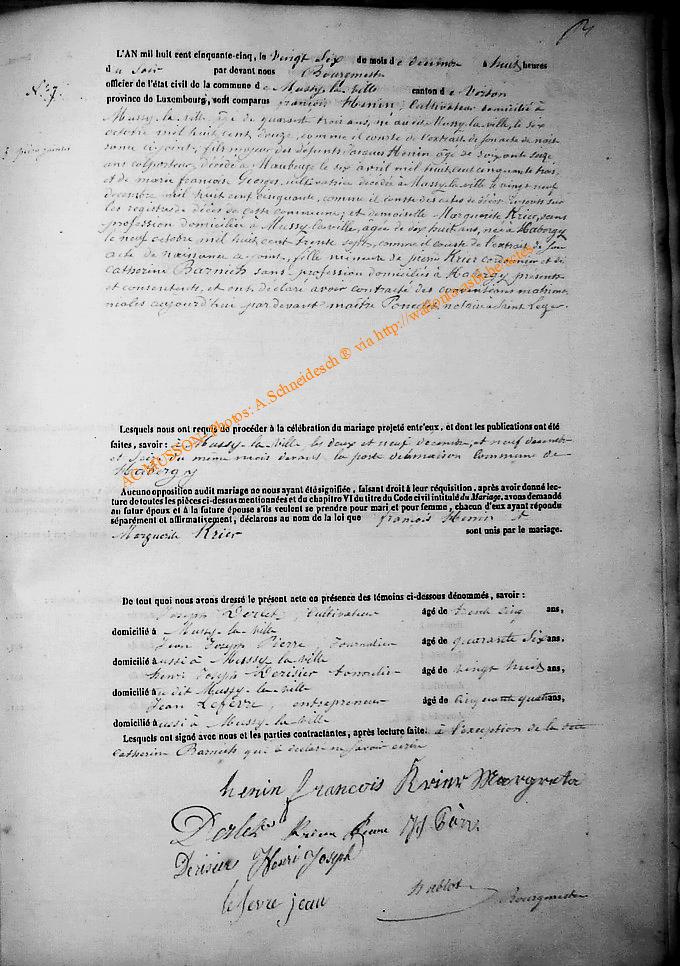 L'AN mil huit cent cinquante-cinq, le vingt six du mois de decembre à huit heures
du soir par devant nous Bourgmestre
officier de l'état civil de la commune de Mussy-la-ville canton de Virton
N° 7.
province de Luxembourg, sont comparus françois Henin, Cultivateur domicilié à
Mussy-la-ville âgé de quarante trois ans, né audit Mussy-la-ville, le six
octobre mil huit cent douze, comme il conste de l'extrait de son acte de nais
sance ci joint, fils majeur des défunts Jacques Henin âgé de soixante seize
ans colporteur, décédé à Maubeuge le six avril mil huit cent cinquante trois,
et de marie françoise Georges, cultivatrice décédée à Mussy-la-ville le vingt neuf
decembre mil huit cent cinquante, comme il conste des actes de décès inscrits sur
les registres de décès de cette commune; et demoiselle Marguerite Krier, sans
profession domiciliée à Mussy-la-ville, âgée de dix huit ans, née à Habergy
le neuf octobre mil huit cent trente sept, comme il conste de l'extrait de son
acte de naissance ci joint, fille mineure de pierre Krier cordonnier et de
Catherine Barnich sans profession domiciliés à Habergy présents
et consentants, et ont déclaré avoir contracté des conventions matrimo
niales aujourd'hui par devant maître notaire à Saint Leger.
AC MUSSON - Photos: A.Schneidesch ® via http://wallonia.asbl.be/actes
Lesquels nous ont requis de procéder à la célébration du mariage projeté entr'eux, et dont les publications ont été
faites, savoir: à Mussy-la-ville les deux et neuf decembre, et neuf decembre
et seize du même mois devant la porte de la maison Commune de
Habergy
Aucune opposition audit mariage ne nous ayant été signifiée, faisant droit à leur réquisition, après avoir donné lec-
ture de toutes les pièces ci-dessus mentionnées et du chapitre VI du titre du Code civil intitulé du Mariage, avons demandé
au futur époux et à la future épouse s'ils veulent se prendre pour mari et pour femme, chacun d'eux ayant répondu
séparément et affirmativement, déclarons au nom de la loi que françois Henin &
Marguerite Krier sont unis par le mariage.
De tout quoi nous avons dressé le présent acte en présence des témoins ci-dessous dénommés, savoir:
Joseph Cultivateur âgé de trente cinq ans,
domicilié à Mussy-la-ville
Jean Joseph Pierre, Journalier âgé de quarante six ans,
domicilié aussi à Mussy la ville
Henri Joseph Derisier tonnelier âgé de vingt huit ans,
domicilié audit Mussy-la-ville
Jean Lefèvre, entrepreneur âgé de cinquante quatre ans,
domicilié aussi à Mussy-la-ville
Lesquels ont signé avec nous et les parties contractantes, après lecture faite: à l'exception de la dite
Catherine Barnich qui a déclaré ne savoir écrire
henin françois Krier Margreta
Krier Pierre
Derisier Henri Joseph
lefevre jean Bourgmestre